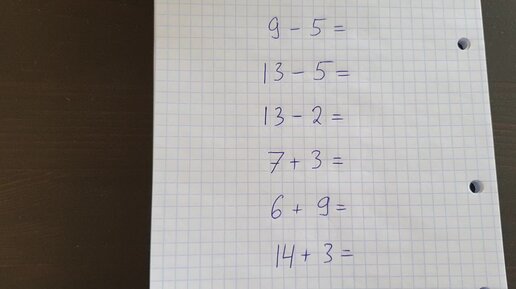 9 - 5 =
13 - 5 =
13 - 2 =
7 + 3 =
6 + 9 =
14 + 3 =